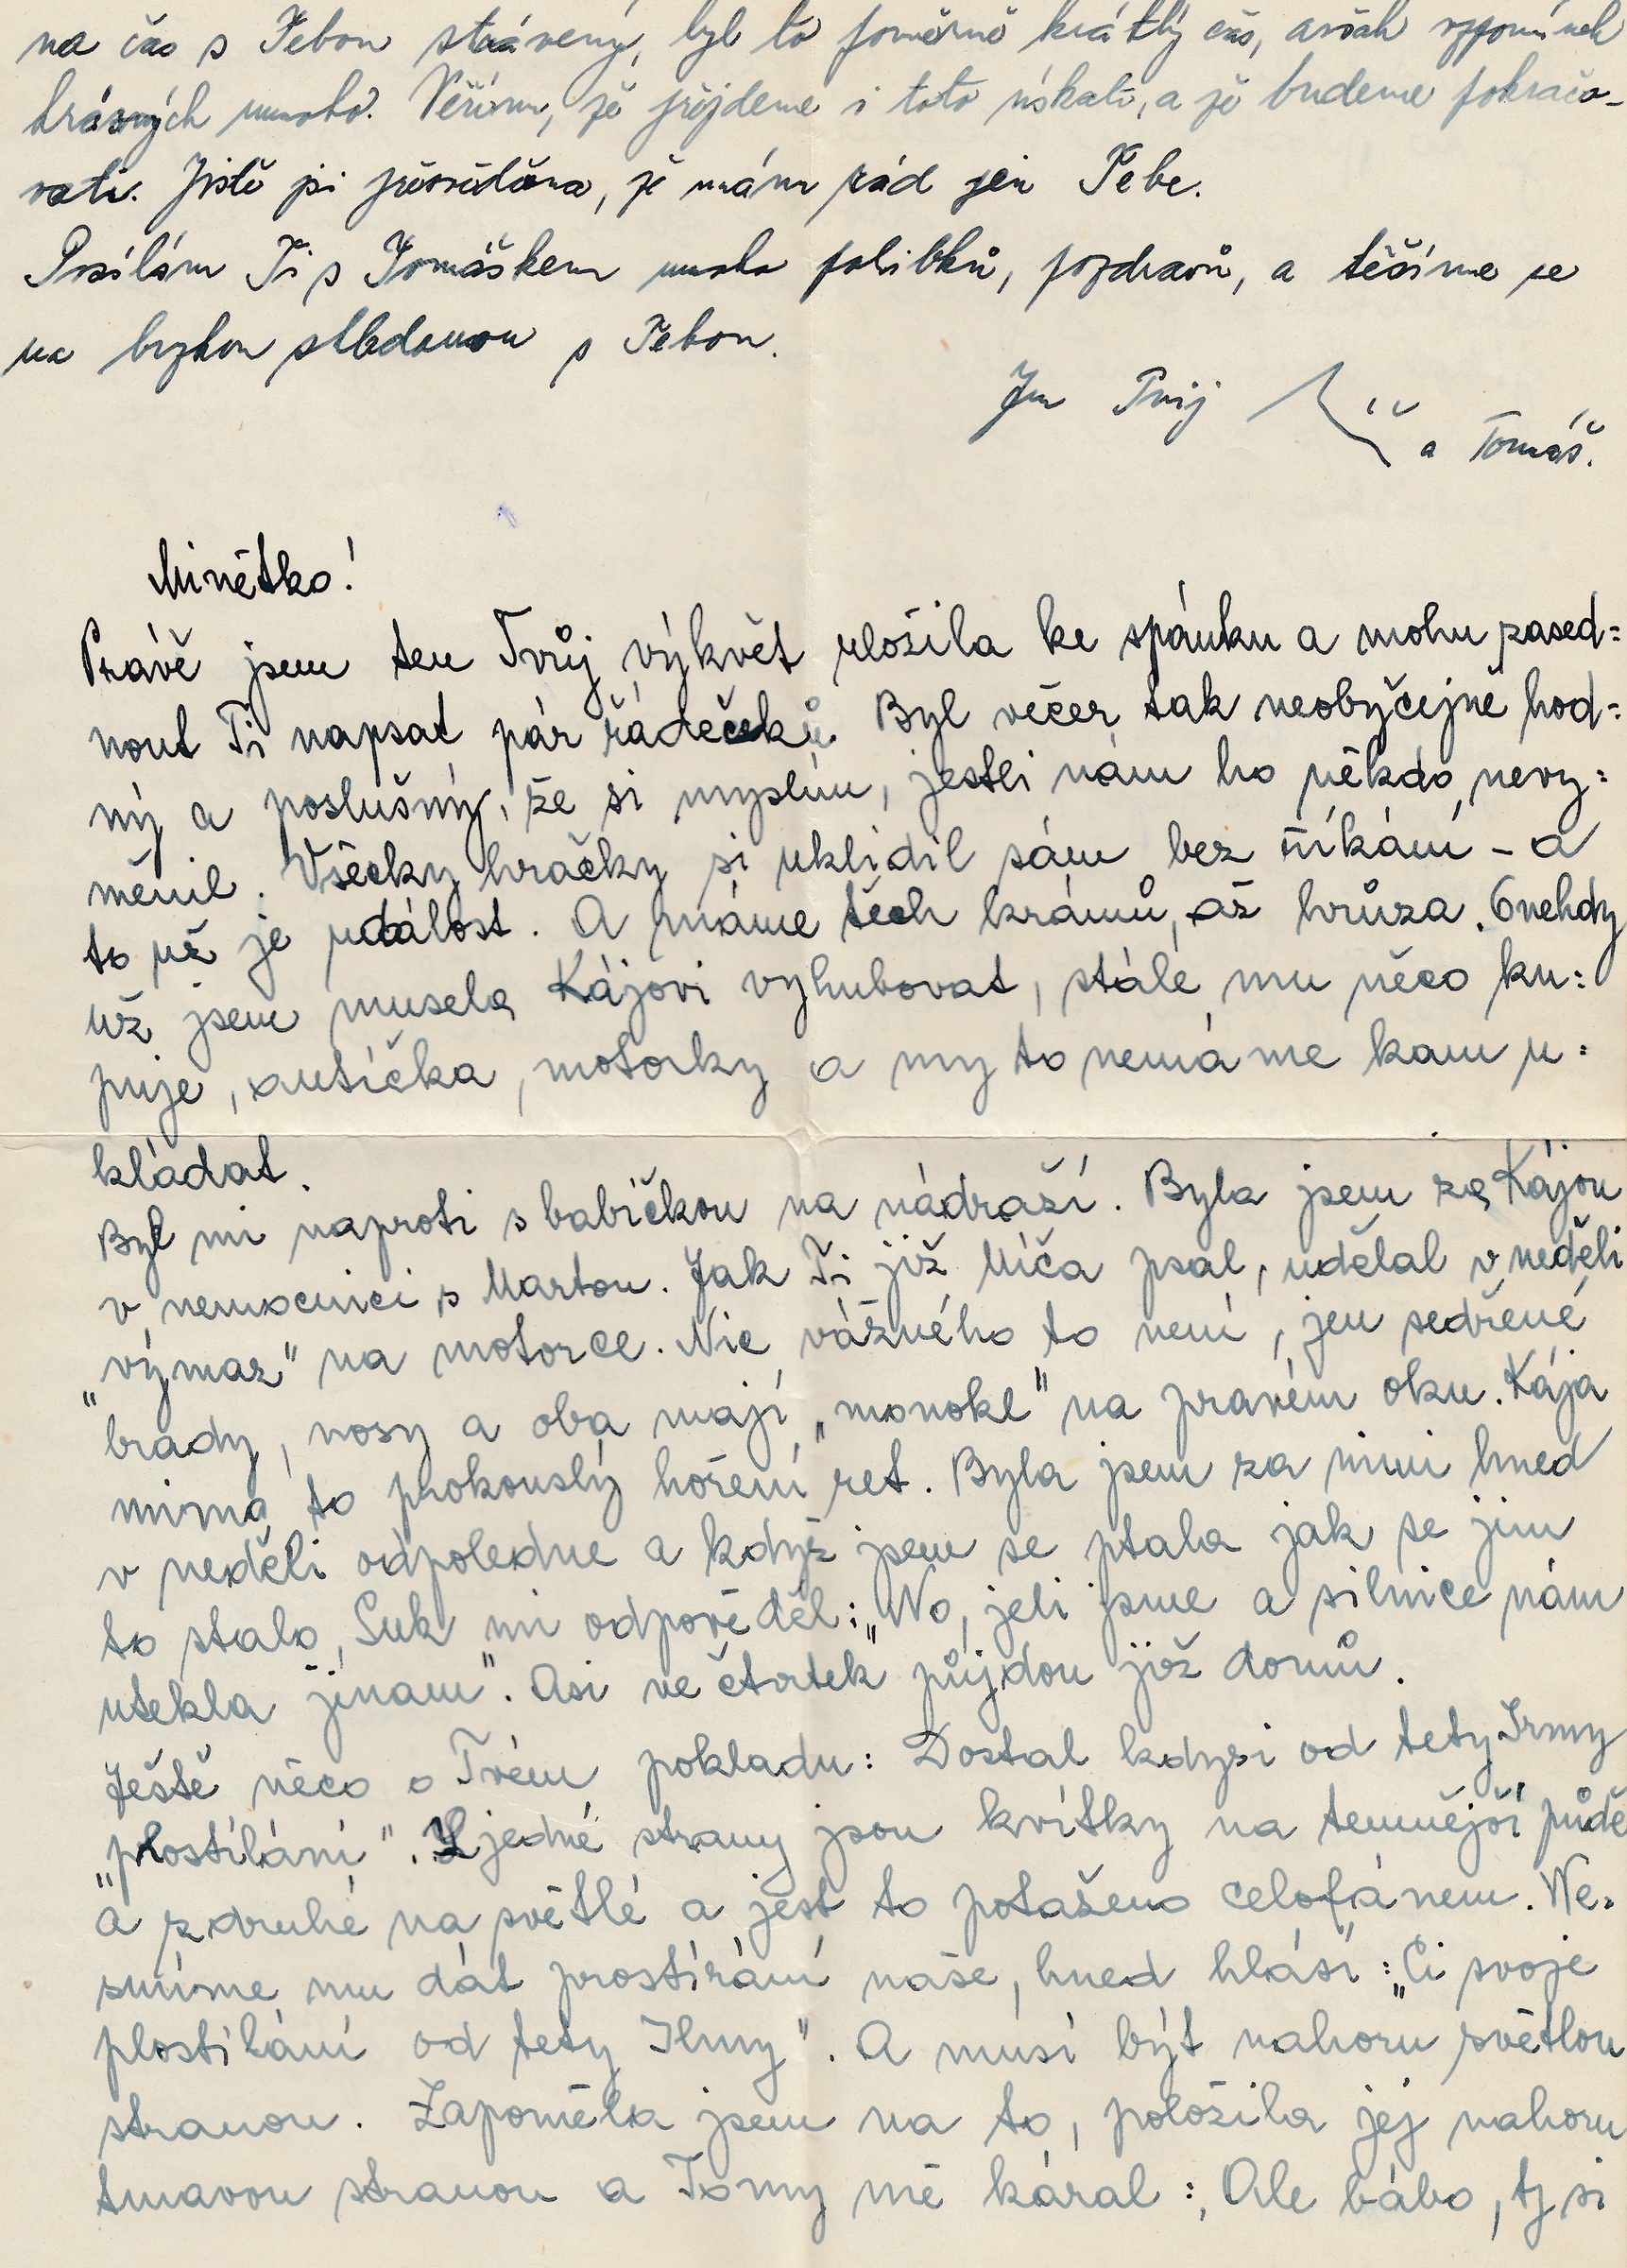 na čas s Tebou strávený, byl to poměrně krátký čas, avšak vzpomínek
krásných mnoho. Věřím, že přejdeme i toto úskalí, a že budeme pokračo-
vati. Jistě jsi přesvědčena, že mám rád jen Tebe.
Posílám Ti s Tomáškem mnoho polibků, pozdravů, a těšíme se
na brzkou shledanou s Tebou.
Jen Tvůj
a Tomáš.
Minětko!
Právě jsem ten Tvůj výkvět uložila ke spánku a mohu zased=
nout Ti napsat pár řádečků. Byl večer tak neobyčejně hod=
ný a poslušný, že si myslím, jestli nám ho někdo nevy=
měnil. Všecky hračky si uklidil sám bez říkání - a
to už je událost. A máme těch krámů, až hrůza. Onehdy
už jsem musela Kájovi vyhubovat, stále mu něco ku=
puje, autíčka, motorky a my to nemáme kam u=
kládat.
Byl mi naproti s babičkou na nádraží. Byla jsem za Kájou
v nemocnici s Martou. Jak Ti již Míča psal, udělal v neděli
"výmaz" na motorce. Nic vážného to není, jen sedřené
brady, nosy a oba mají „monokl" na pravém oku. Kája
mimo to prokouslý hoření ret. Byla jsem za nimi hned
v neděli odpoledne a když jsem se ptala jak se jim
to stalo, Suk mi odpověděl: „No, jeli jsme a silnice nám
utekla jinam". Asi ve čtvrtek půjdou již domů.
Ještě něco o Tvém pokladu: Dostal kdysi od tety Irmy
„plostílání". Z jedné strany jsou kvítky na temnější půdě
a z druhé na světlé a jest to potaženo celofánem. Ne=
smíme mu dát prostírání naše, hned hlásí: „Ci svoje
plostílání od tety Ilmy". A musí být nahoru světlou
stranou. Zapoměla jsem na to, položila jej nahoru
tmavou stranou a Tomy mě káral: „Ale bábo, ty si